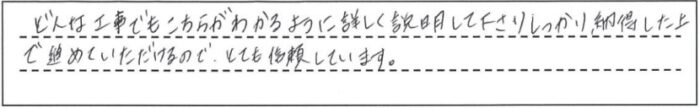 どんな工事でもこちらがわかるように詳しく説明して下さりしっかり、納得した上
で進めていただけるので、とても信頼しています。